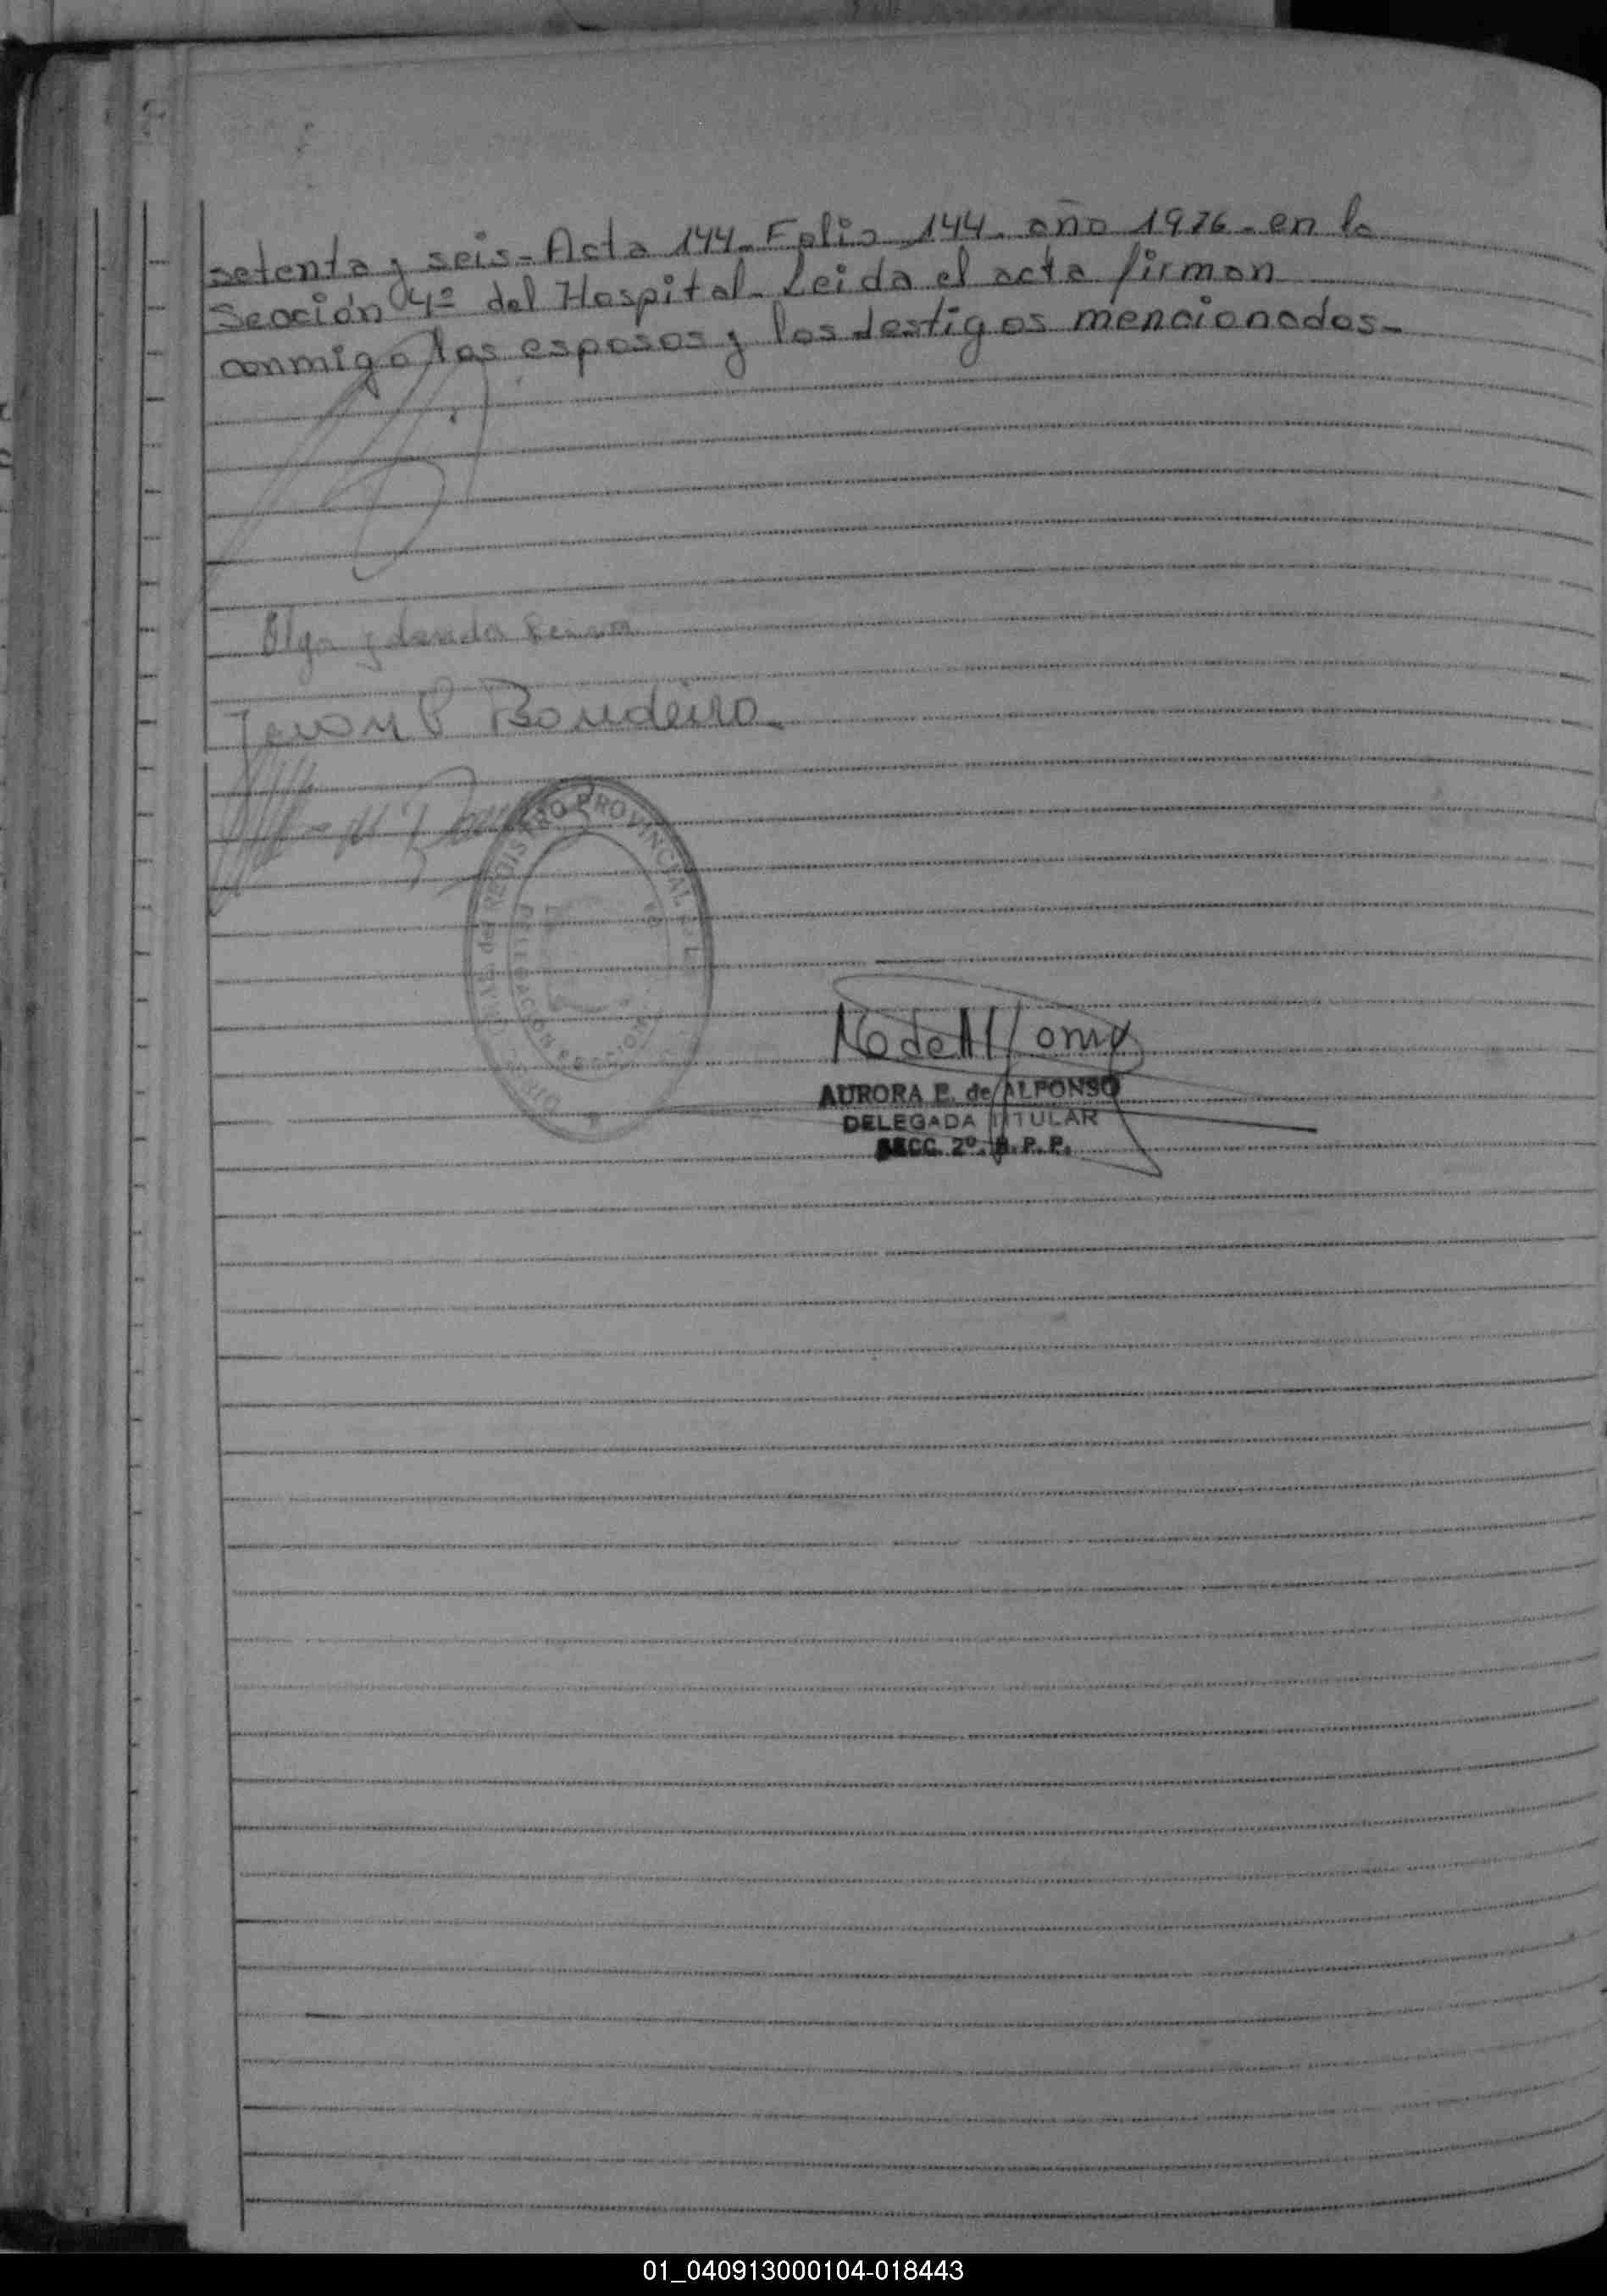 setenta y seis - Acta 144 - Folio 144 - año 1976 - en la
Sección 4º del Hospital - Leida el acta firman
conmigo los esposos y los testigos mencionados -
Olga
Bandeiro
REGISTRO PROVINCIAL
DELEGACION
AURORA E. de ALFONSO
DELEGADA TITULAR
SECC. 2º. R. P. P.
01_040913000104-018443